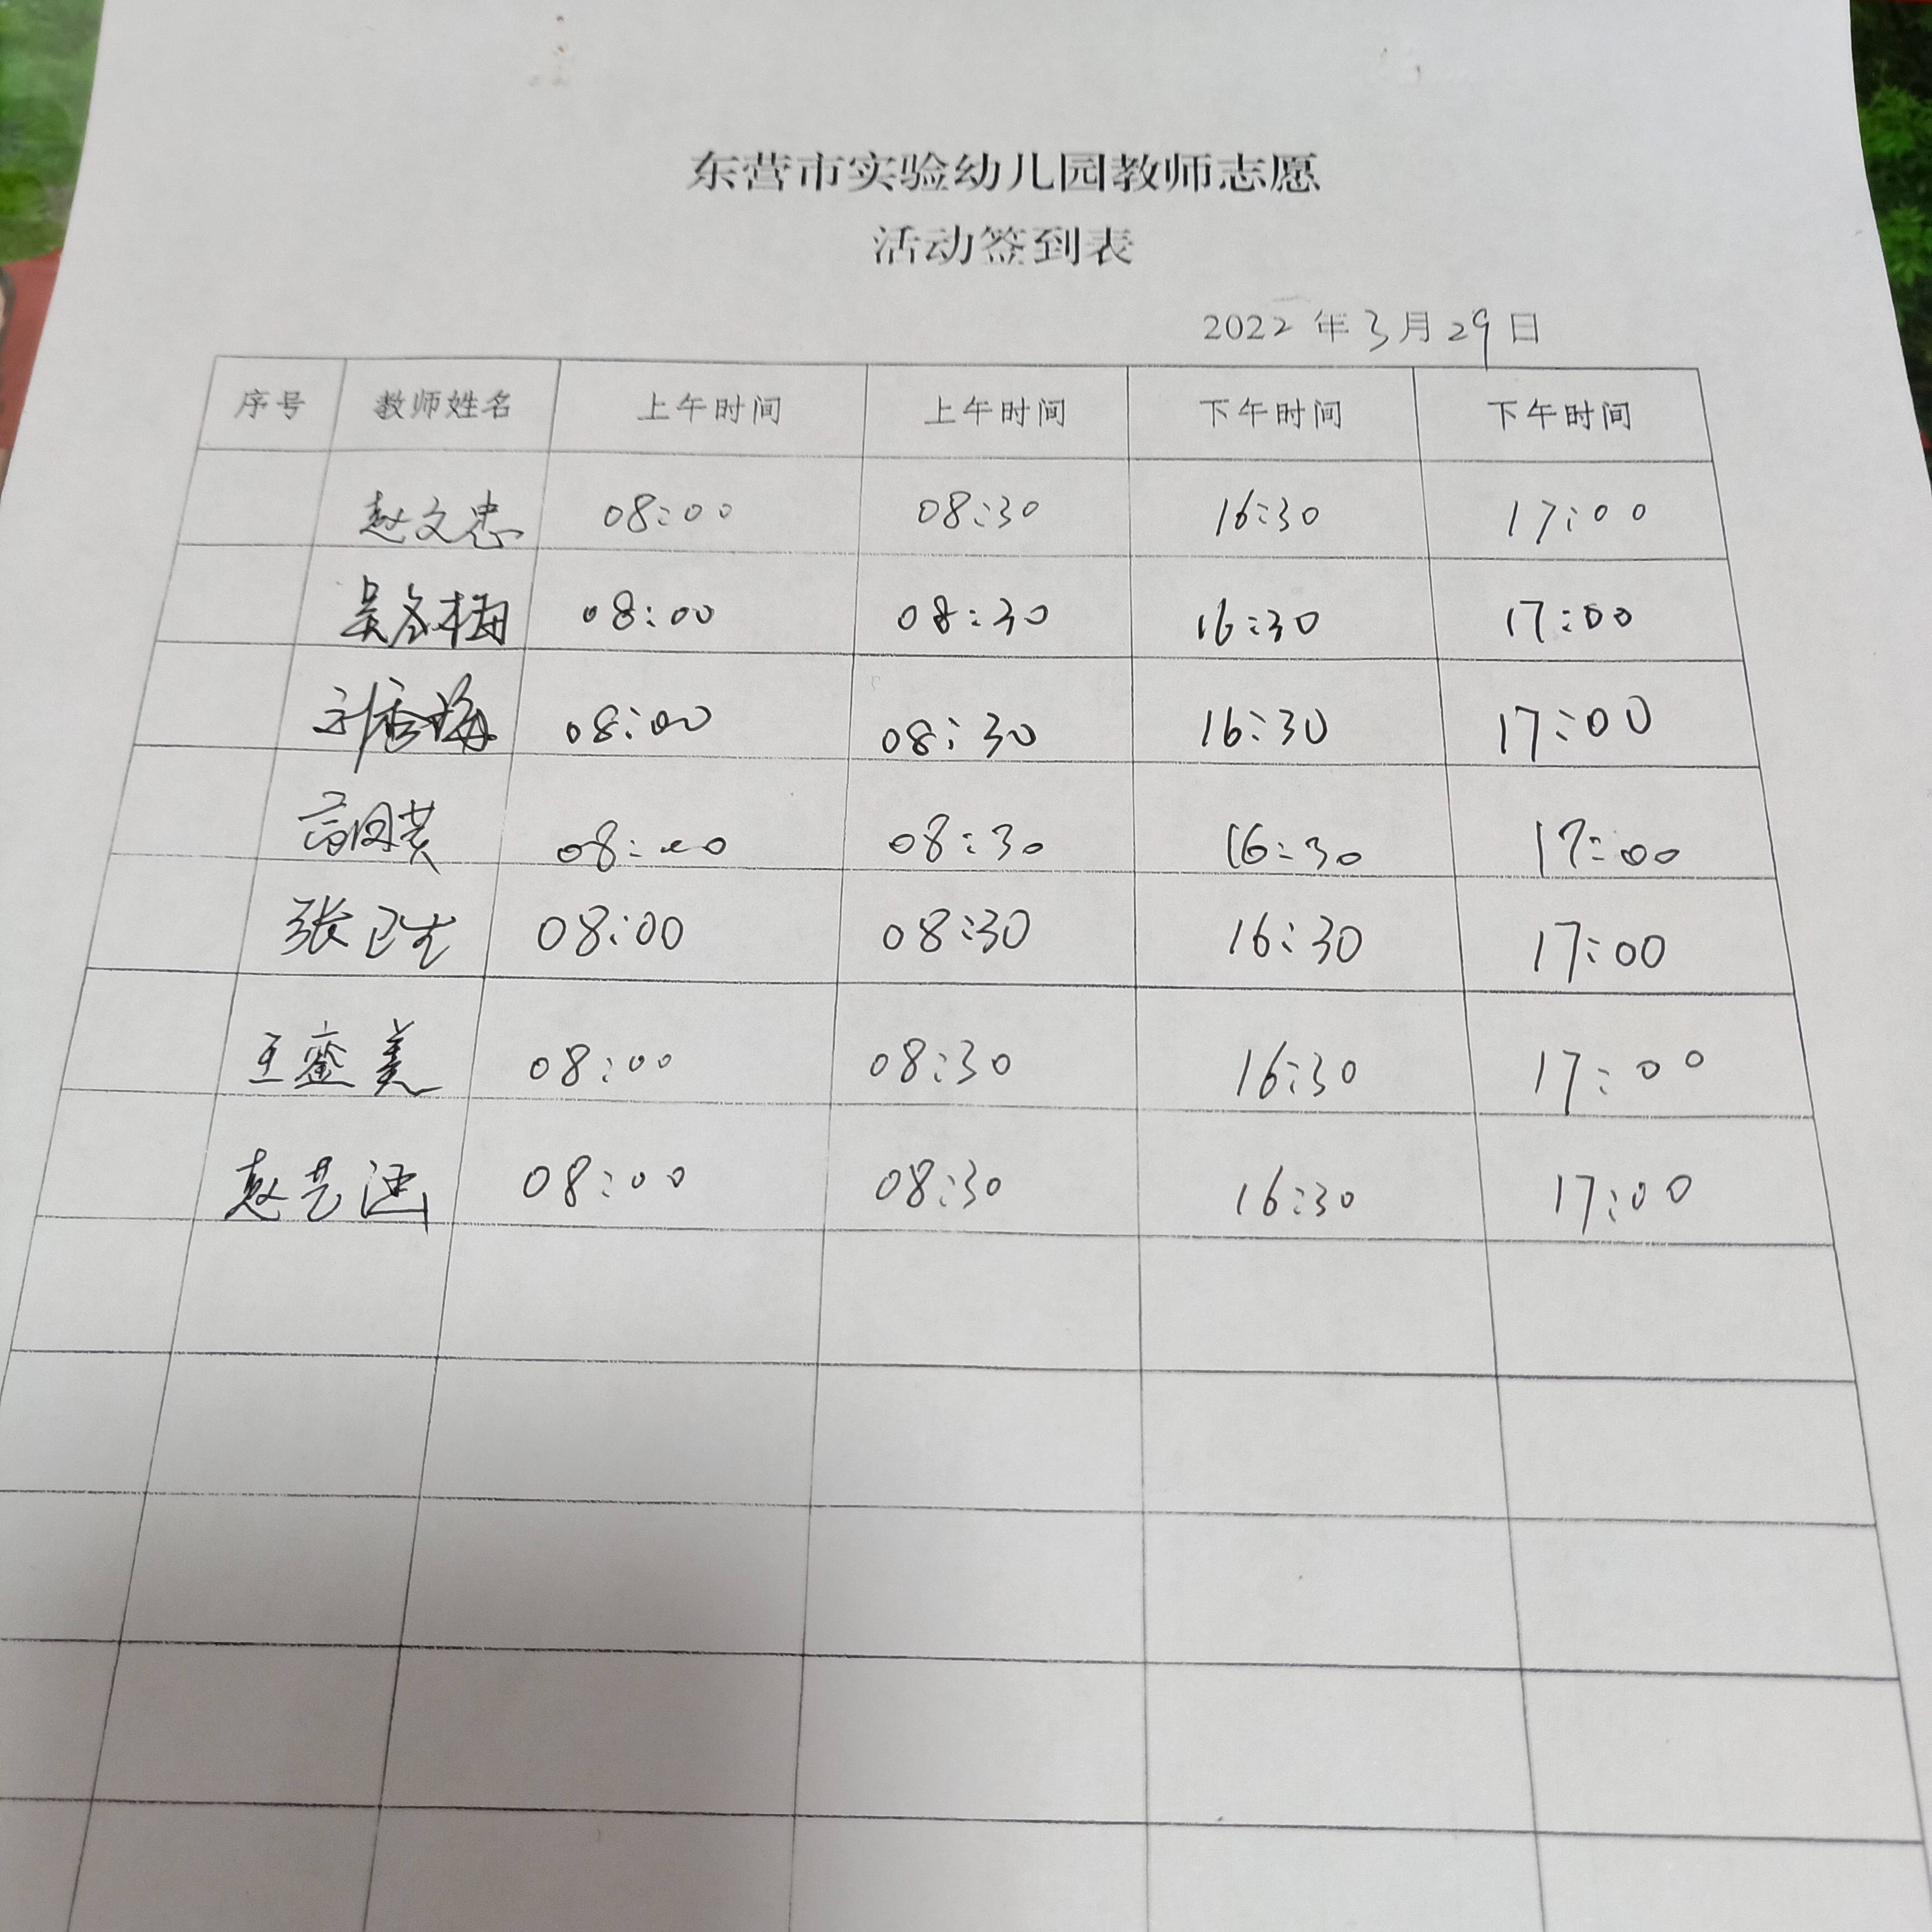 东营市实验幼儿园教师志愿
活动签到表
2022年3月29日
序号 教师姓名 上午时间 上午时间 下午时间 下午时间
赵文忠 08:00 08:30 16:30 17:00
吴冬梅 08:00 08:30 16:30 17:00
刘香梅 08:00 08:30 16:30 17:00
高风英 08:00 08:30 16:30 17:00
张卫 08:00 08:30 16:30 17:00
王 美 08:00 08:30 16:30 17:00
赵艺涵 08:00 08:30 16:30 17:00